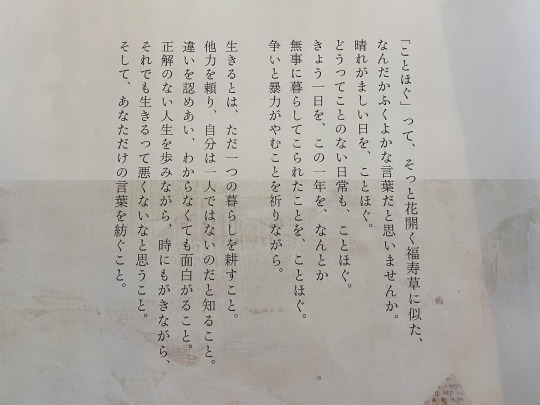 「ことほぐ」って、そっと花開く福寿草に似た、
なんだかふくよかな言葉だと思いませんか。
晴れがましい日を、ことほぐ。
どうってことのない日常も、ことほぐ。
きょう一日を、この一年を、なんとか
無事に暮らしてこられたことを、ことほぐ。
争いと暴力がやむことを祈りながら。
生きるとは、ただ一つの暮らしを耕すこと。
他力を頼り、自分は一人ではないのだと知ること。
違いを認めあい、わからなくても面白がること。
正解のない人生を歩みながら、時にもがきながら、
それでも生きるって悪くないなと思うこと。
そして、あなただけの言葉を紡ぐこと。